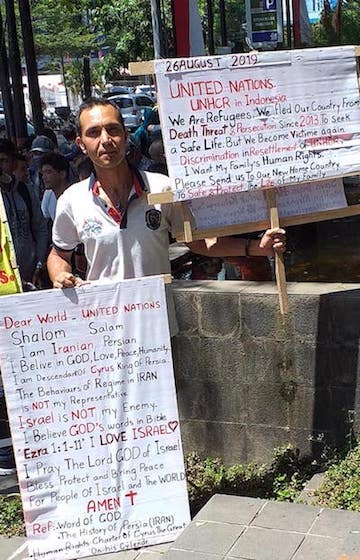 26 AUGUST 2019
UNITED NATIONS
UNHCR in Indonesia
We Are Refugees. We Fled Our Country From
Death Threat & Persecution Since 2013 To Seek
a Safe Life. But We Become Victime again
Discrimination in Resettlement of UNHCR
I Want My Family's Human Rights.
Please Send Us to Our New Home Country
To Safe & Protect the Life of My Family
Dear World - UNITED NATIONS
Shalom Salam
I am Iranian, Persian
I Believe in GOD, Love, Peace, Humanity
I am Descendant Of Cyrus King Of Persia
The Behaviours of Regime in IRAN
is NOT my Representative
Israel is NOT my Enemy.
I Believe GOD's words in Bible
"Ezra 1:1-11" I LOVE ISRAEL
I Pray The Lord GOD of Israel
Bless Protect and Bring Peace
For People of Israel and The WORLD
AMEN
Ref: Word of GOD
- The History of Persia (IRAN)
- Human Rights Charter of Cyrus The Great